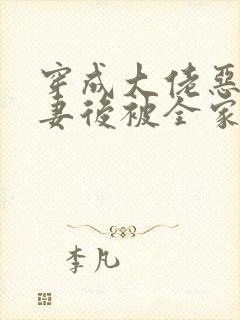 穿成大佬惡
妻後被全家
李凡